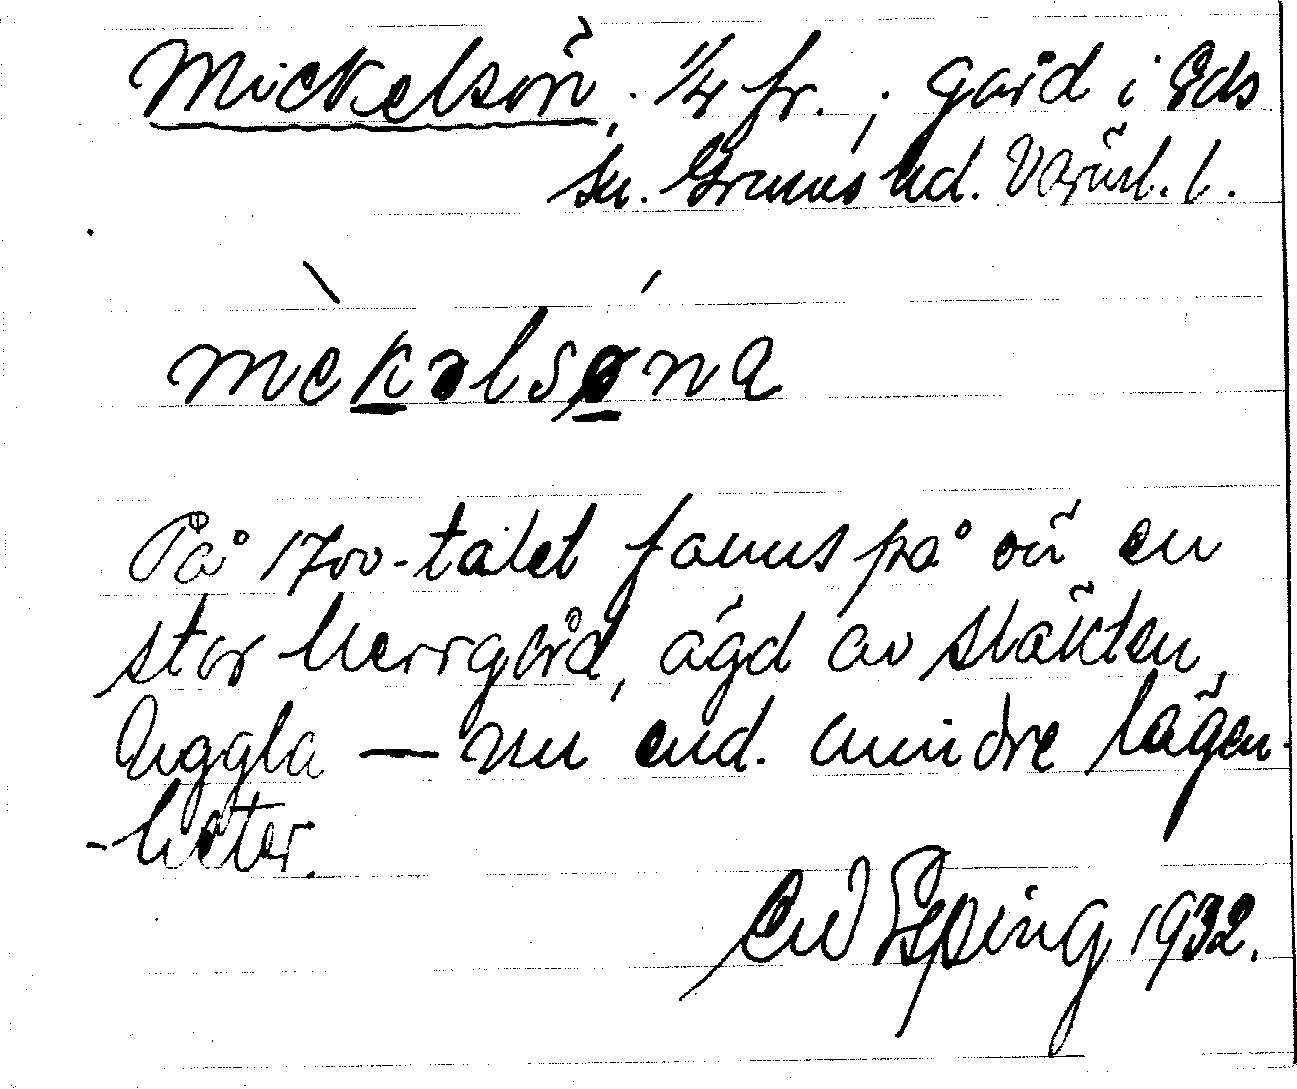 Mickelsön. 1/4 fr.; gård i Eds
sn. Grums hd. Värml. l.
mèkəlsǿna
På 1700-talet fanns på ön en
stor herrgård, ägd av släkten
Uggla — nu end. mindre lägen-
-heter.
Esping 1932.